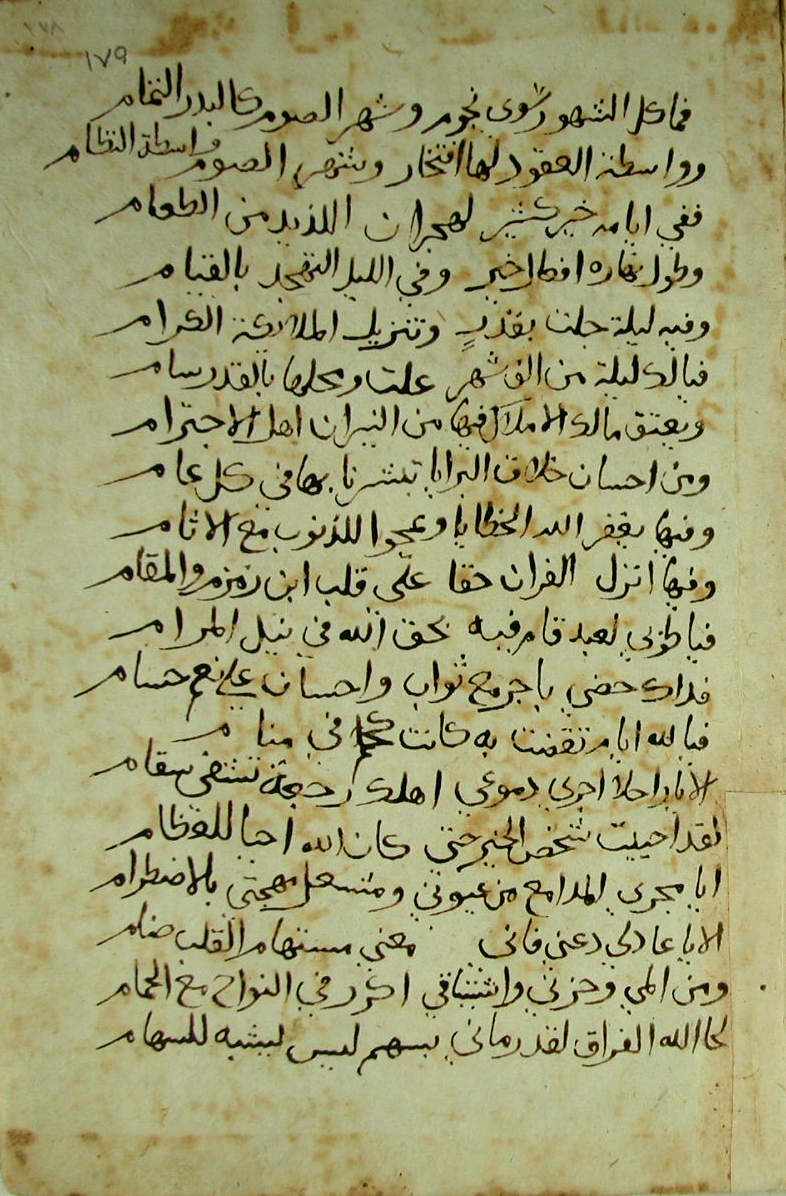 ١٧٩
فما كل الشهور سوى نجوم وشهر الصوم كالبدر التمام
وواسطة العقود لها افتخار وشهر الصوم واسطة النظام
ففي ايامه خير كثير لهجران اللذيذ من الطعام
وطول نهاره افطال خير وفي الليل التهجد بالقيام
وفيه ليلة جلت بقدر وتنزيل الملائكة الكرام
فيالك ليلة من الف شهر علت ومحلها بالقدر سام
ويعتق مالك الاملاك فيها من النيران اهل الاحترام
ومن احسان خلاق البرايا تبشرنا بها في كل عام
وفيها يغفر الله الخطايا وعجوا للذنوب مع الاثام
وفيها انزل القران حقا على قلب ابن زمزم والمقام
فيا طوبى لعبد قام فيه بحق الله في نيل المرام
فذاك حضي باجر مع ثواب واحسان على نعم جسام
فيالله ايام تقضت به كانت كحلم في منام
الا يا راحلا اجرى دموعي اهلك رجعة تشفي سقام
لقد احييت شخص الخير حتى كان الله احيا للعظام
ايا مجري المدامع من عيوني ومشعل مهجتي بالاضطرام
الا يا عاذلي دعني فاني معنى مستهام القلب ضام
ومن المي وحزني واشتياقي اكرر في النواح مع الحمام
لحا الله الفراق لقد رماني بسهم ليس يشبه للسهام